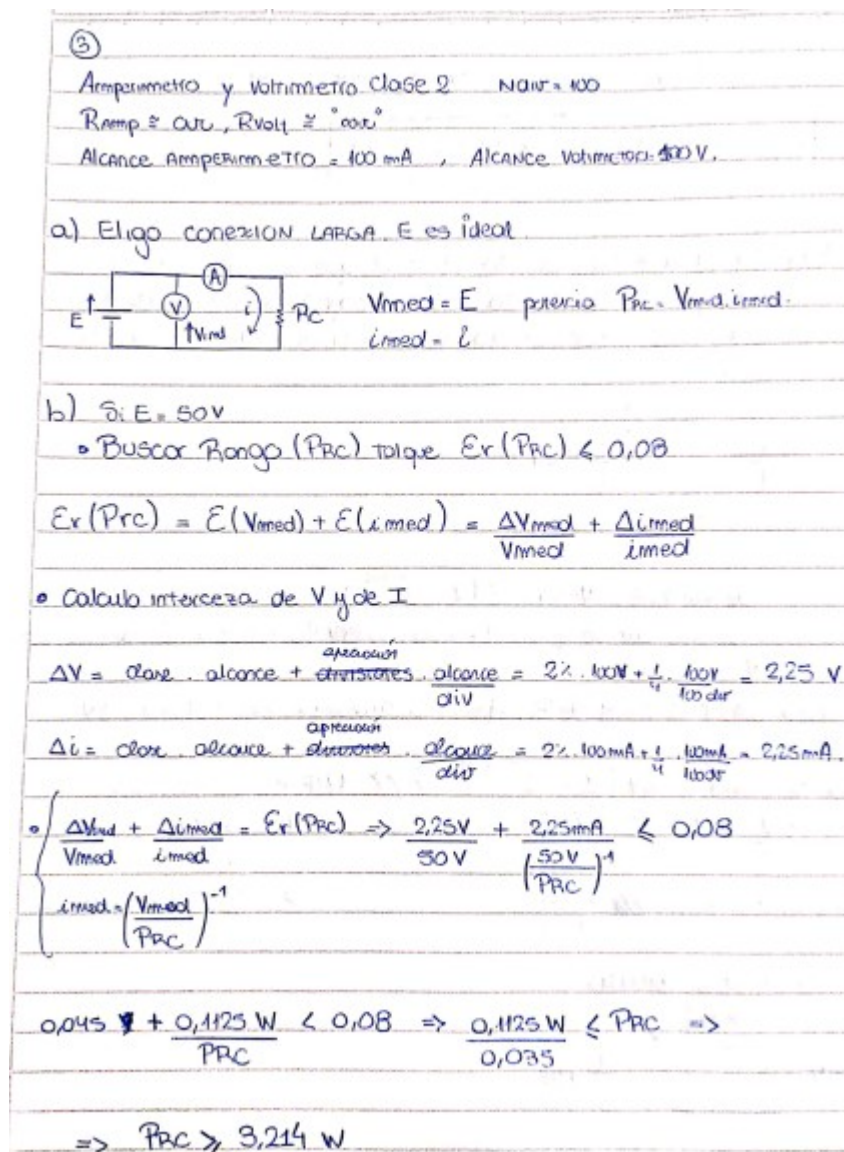 ③
Amperimetro y voltimetro clase 2 Ndiv = 100
Ramp ≅ 0Ω, Rvolt ≅ "∞Ω"
Alcance Amperimetro = 100 mA , Alcance voltimetro = 100 V.
a) Eligo conexion LARGA. E es ideal
E V A i RC Vmed
Vmed = E potencia PRC = Vmed . imed.
imed = i
b) Si E = 50V
• Buscar Rango (PRC) tal que Er (PRC) ≤ 0,08
Er (Prc) = Ɛ(Vmed) + Ɛ(imed) = ΔVmed/Vmed + Δimed/imed
• Calculo interceza de V y de I
ΔV = clase . alcance + apreciación . alcance/div = 2% . 100V + 1/4 . 100V/100div = 2,25 V
Δi = clase . alcance + apreciación . alcance/div = 2% . 100mA + 1/4 . 100mA/100div = 2,25mA.
• ΔVmed/Vmed + Δimed/imed = Er (PRC) => 2,25V/50V + 2,25mA/(50V/PRC)⁻¹ ≤ 0,08
imed = (Vmed/PRC)⁻¹
0,045 + 0,1125 W/PRC < 0,08 => 0,1125 W/0,035 ≤ PRC =>
=> PRC ≥ 3,214 W